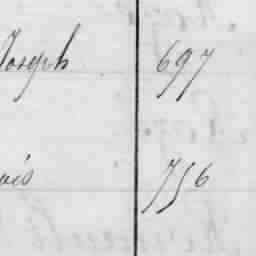 Joseph 697
756